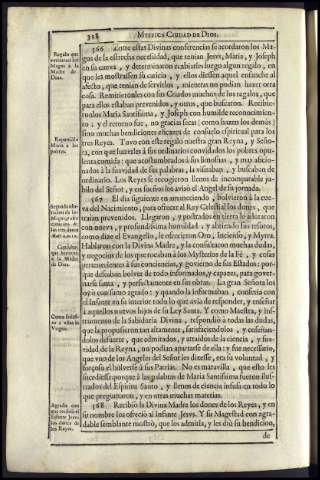 328 MYSTICA CIUDAD DE DIOS.
566 Entre estas Divinas conferencias se acordaron los Ma-
gos de la estrecha necesidad, que tenian Jesvs, Maria, y Joseph
en su cueva, y determinaron embiarles luego algun regalo, en
que les mostrassen su caricia, y ellos diessen aquel ensanche al
afecto, que tenian de servirlos, mientras no podian hazer otra
cosa. Remitieronles con sus Criados muchos de los regalos, que
para ellos estaban prevenidos, y otros, que buscaron. Recibie-
ronlos Maria Santissima, y Joseph con humilde reconocimien-
to; y el retorno fue, no gracias secas (como hazen los demás)
sino muchas bendiciones eficazes de consuelo espiritual para los
tres Reyes. Tuvo con este regalo nuestra gran Reyna, y Seño-
ra, con que hazerles à sus ordinarios convidados los pobres opu-
lenta comida; que acostumbrados à sus limosnas, y muy aficio-
nados à la suavidad de sus palabras, la visitaban, y buscaban de
ordinario. Los Reyes se recogieron llenos de incomparable ju-
bilo del Señor, y en sueños los avisò el Angel de su jornada.
567 El dia siguiente en amaneciendo, bolvieron à la cue-
va del Nacimiento, para ofrecer al Rey Celestial los dones, que
traian prevenidos. Llegaron, y postrados en tierra le adoraron
con nueva, y profundissima humildad; y abriendo sus tesoros,
como dize el Evangelio, le ofrecieron Oro, Incienso, y Myrra.
Hablaron con la Divina Madre, y la consultaron muchas dudas,
y negocios de los que tocaban à los Mysterios de la Fè, y cosas
pertenecientes à sus conciencias, y govierno de sus Estados: por-
que deseaban bolver de todo informados, y capazes, para gover-
narse santa, y perfectamente en sus obras. La gran Señora los
oyò con sumo agrado; y quando la informaban, conferia con
el Infante en su interior todo lo que avia de responder, y enseñar
à aquellos nuevos hijos de su Ley Santa. Y como Maestra, y ins-
trumento de la Sabiduria Divina, respondiò à todas las dudas,
que la propusieron tan altamente, santificandolos, y enseñan-
dolos de suerte, que admirados, y atraidos de la ciencia, y sua-
vidad de la Reyna, no podian apartarse de ella: y fue necessario,
que vno de los Angeles del Señor les dixesse, era su voluntad, y
forçoso el bolverse à sus Patrias. No es maravilla, que esto les
sucediesse; porque à las palabras de Maria Santissima fueron ilus-
trados del Espiritu Santo, y llenos de ciencia infusa en todo lo
que preguntaron, y en otras muchas materias.
568 Recibiò la Divina Madre los dones de los Reyes, y en
su nombre los ofreciò al Infante Jesvs. Y su Magestad con agra-
dable semblante mostrò, que los admitia, y les diò su bendicion,
de
Regalo que
embiaron los
Magos à la
Madre de
Dios.
Repartiòle
Maria à los
pobres.
Segunda ado-
de los tres
Reyes
à la Madre
de Dios.
Virgen.
Agrado con
que recibiò el
Infante Jesvs
los dones de
los Reyes.